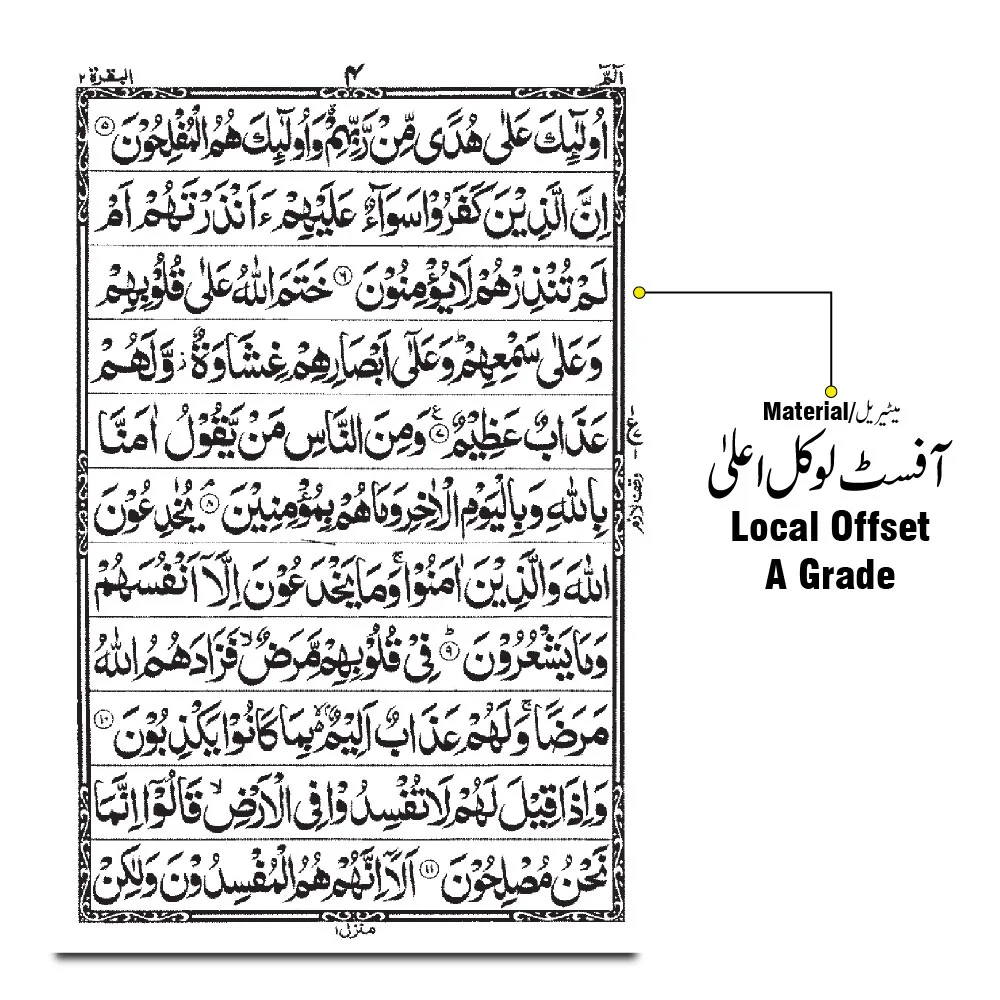 الٓمّٓ ۴ البقرة ٢
اُولٰٓئِكَ عَلٰى هُدًى مِّنْ رَّبِّهِمْ ۗ وَاُولٰٓئِكَ هُمُ الْمُفْلِحُوْنَ ۝۵
اِنَّ الَّذِيْنَ كَفَرُوْا سَوَآءٌ عَلَيْهِمْ ءَاَنْذَرْتَهُمْ اَمْ
لَمْ تُنْذِرْهُمْ لَا يُؤْمِنُوْنَ ۝۶ خَتَمَ اللّٰهُ عَلٰى قُلُوْبِهِمْ
وَعَلٰى سَمْعِهِمْ ؕ وَعَلٰٓى اَبْصَارِهِمْ غِشَاوَةٌ ؗ وَّلَهُمْ
عَذَابٌ عَظِيْمٌ ۝۷ع وَمِنَ النَّاسِ مَنْ يَّقُوْلُ اٰمَنَّا
بِاللّٰهِ وَبِالْيَوْمِ الْاٰخِرِ وَمَا هُمْ بِمُؤْمِنِيْنَ ۘ۝۸ يُخٰدِعُوْنَ
وقف لازم
اللّٰهَ وَالَّذِيْنَ اٰمَنُوْا ۚ وَمَا يَخْدَعُوْنَ اِلَّاۤ اَنْفُسَهُمْ
وَمَا يَشْعُرُوْنَ ؕ۝۹ فِىْ قُلُوْبِهِمْ مَّرَضٌ ۙ فَزَادَهُمُ اللّٰهُ
مَرَضًا ۚ وَلَهُمْ عَذَابٌ اَلِيْمٌۢ ۙ۬ بِمَا كَانُوْا يَكْذِبُوْنَ ۝۱۰
وَاِذَا قِيْلَ لَهُمْ لَا تُفْسِدُوْا فِى الْاَرْضِ ۙ قَالُوْٓا اِنَّمَا
نَحْنُ مُصْلِحُوْنَ ۝۱۱ اَلَاۤ اِنَّهُمْ هُمُ الْمُفْسِدُوْنَ وَلٰكِنْ
منزل ۱
Material/میٹیریل
آفسٹ لوکل اعلیٰ
Local Offset
A Grade